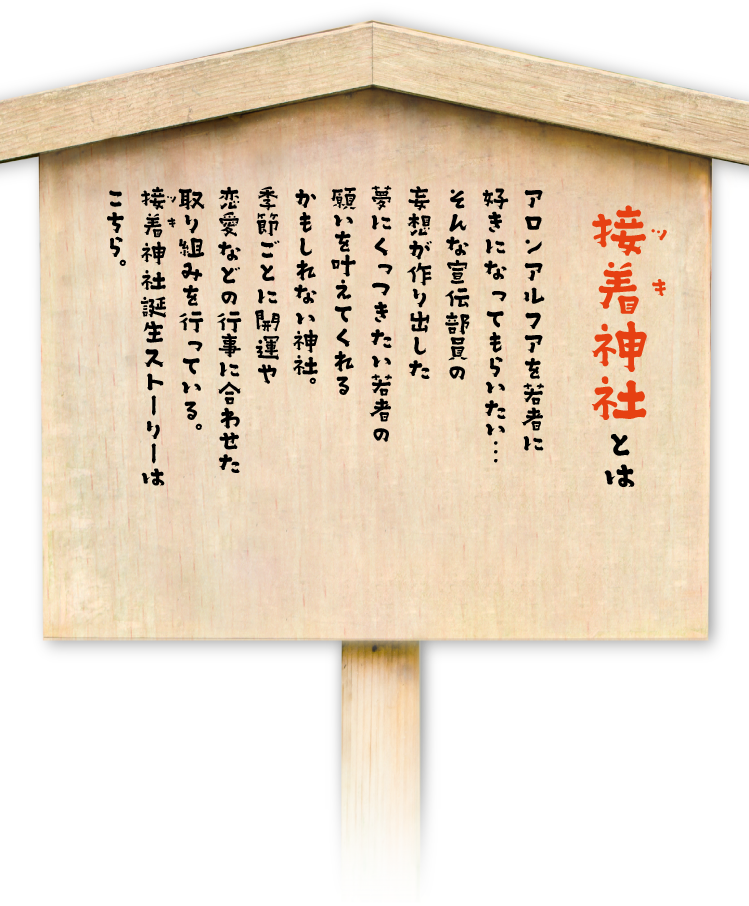 接着神社とは
ツキ
アロンアルフアを若者に
好きになってもらいたい…
そんな宣伝部員の
妄想が作り出した
夢にくっつきたい若者の
願いを叶えてくれる
かもしれない神社。
季節ごとに開運や
恋愛などの行事に合わせた
取り組みを行っている。
接着神社誕生ストーリーは
ツキ
こちら。